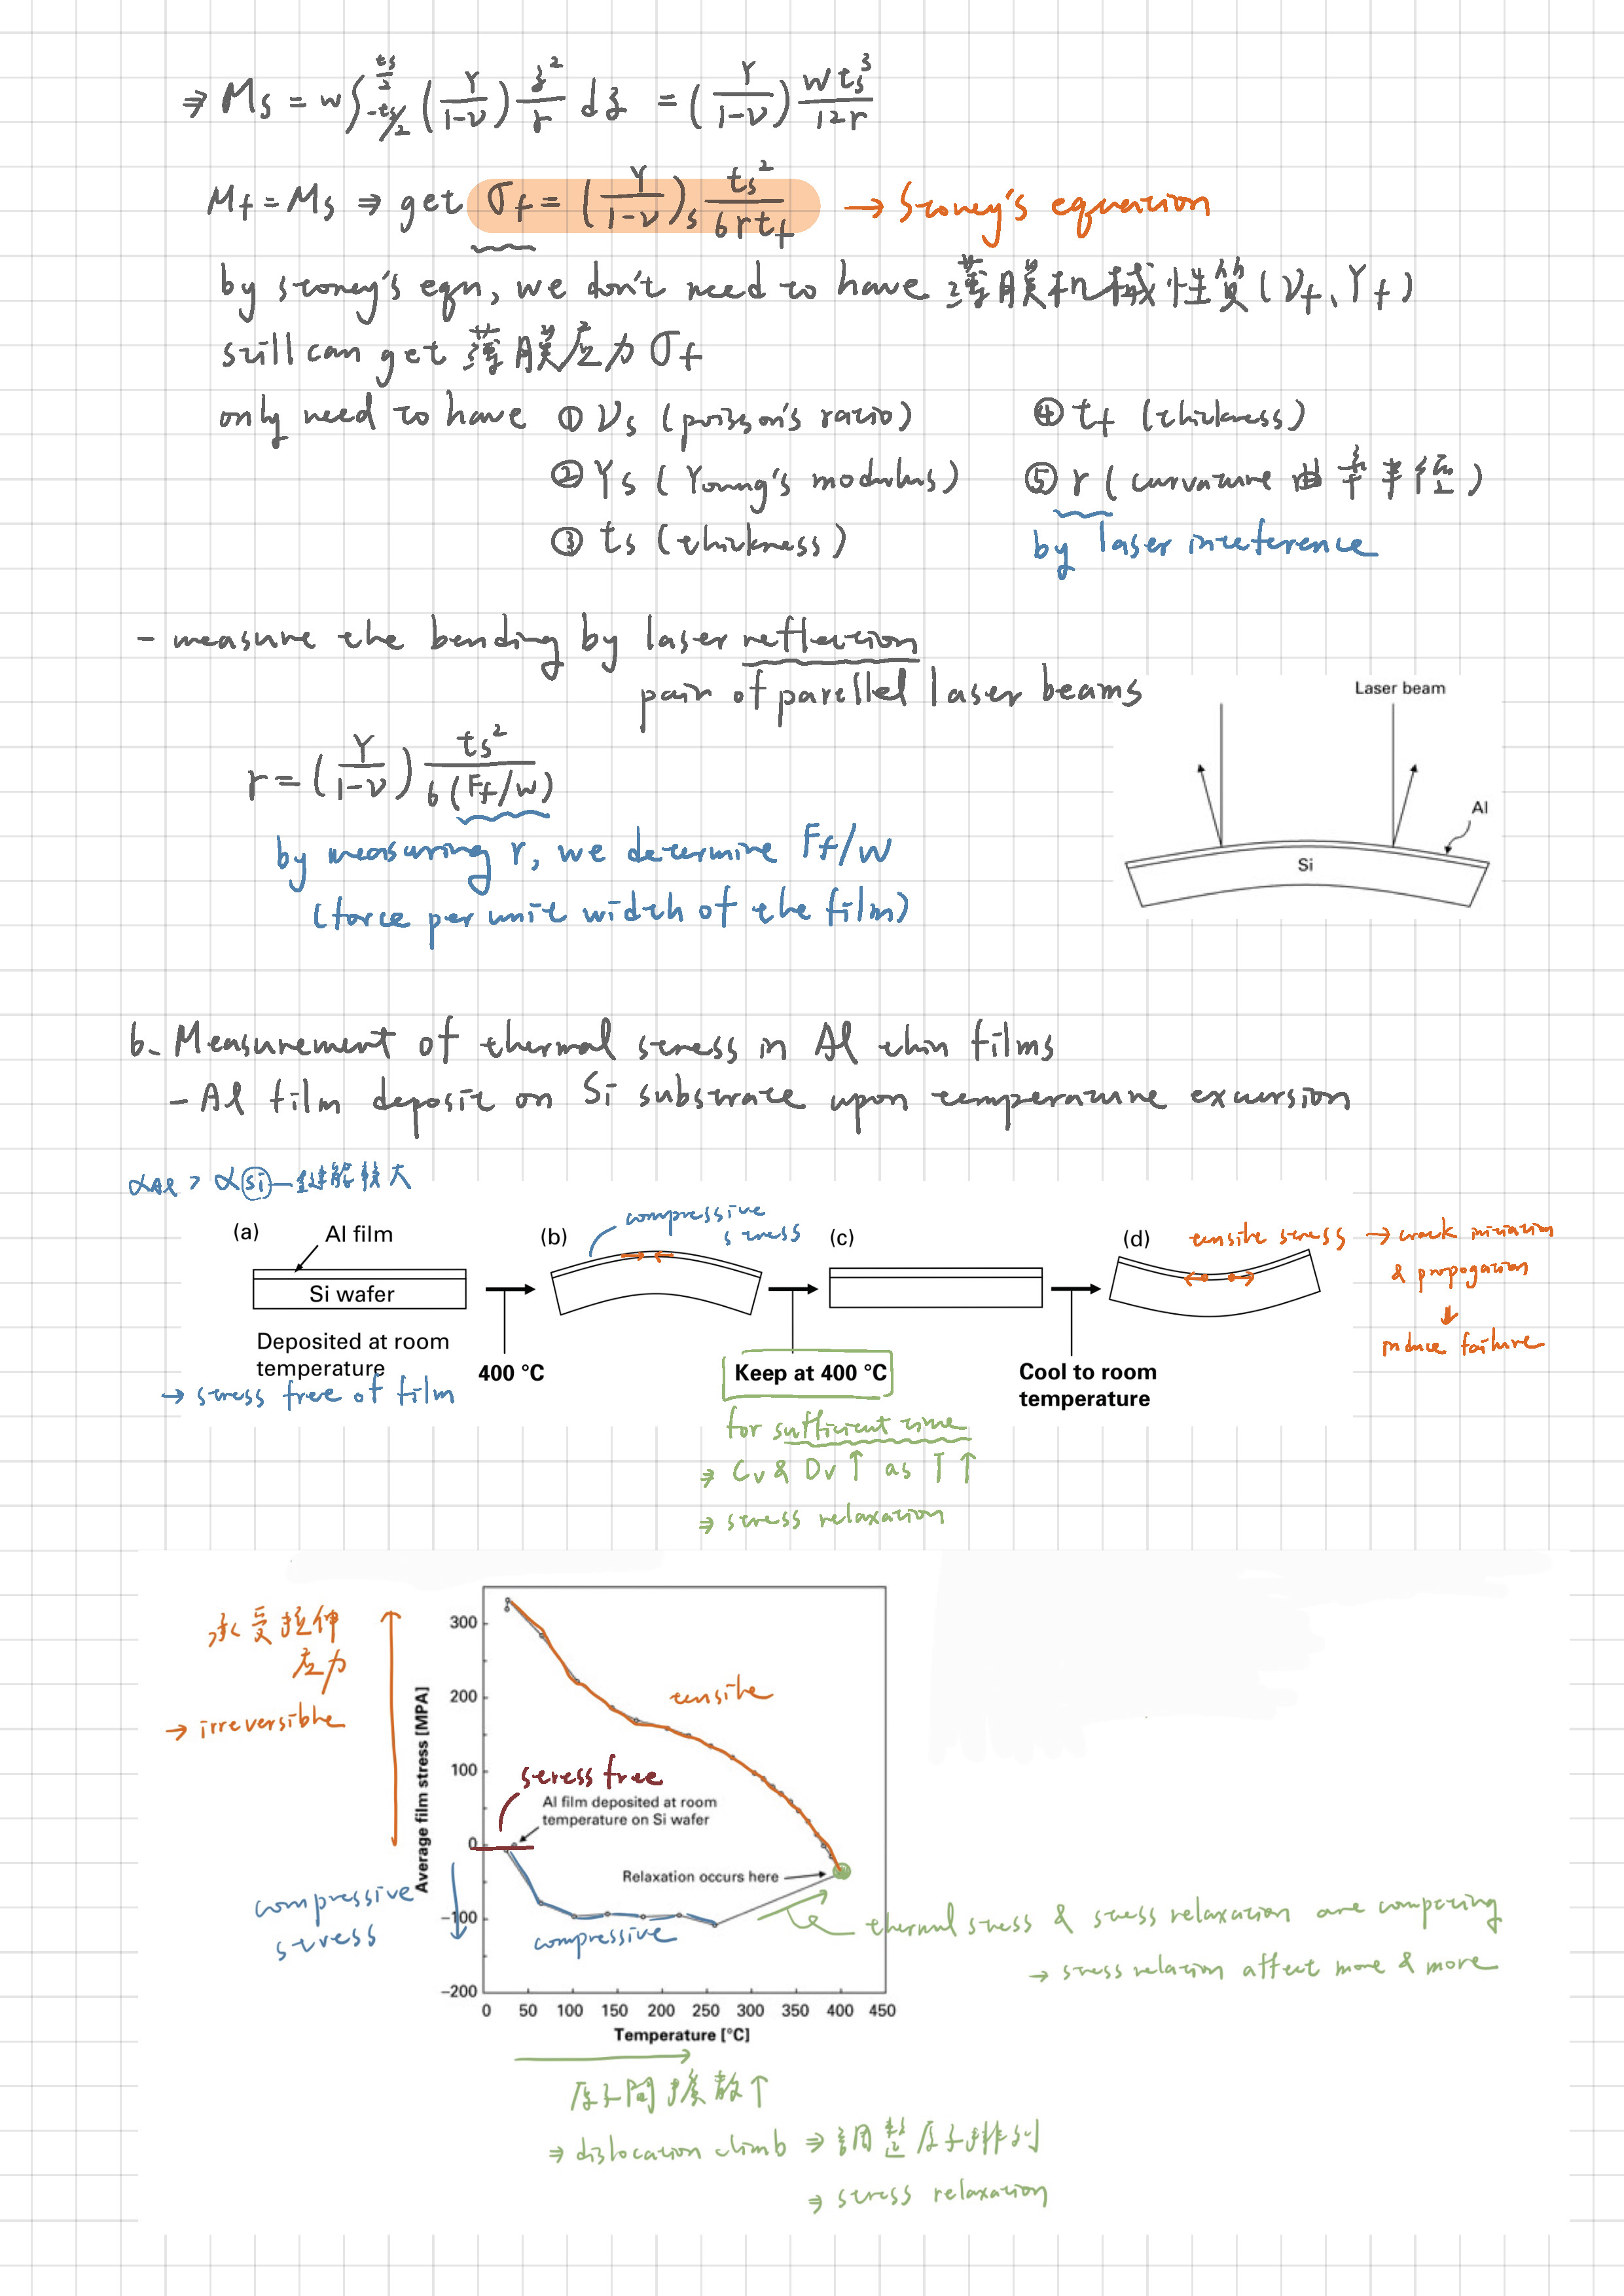 ⇒ Ms = w∫_{-ts/2}^{ts/2} (Y/(1-ν)) z²/r dz = (Y/(1-ν)) w ts³/12r
Mf = Ms ⇒ get σf = (Y/(1-ν))s ts²/6rtf → Stoney's equation
by stoney's eqn, we don't need to have 薄膜机械性質(νf、Yf)
still can get 薄膜应力 σf
only need to have ① νs (poisson's ratio) ④ tf (thickness)
② Ys (Young's modulus) ⑤ r (curvature 曲率半徑)
③ ts (thickness) by laser inteference
- measure the bending by laser reflection
pair of parellel laser beams
r = (Y/(1-ν)) ts²/6(Ff/w)
by measuring r, we determine Ff/w
(force per unit width of the film)
Laser beam
Al
Si
b. Measurement of thermal stress in Al thin films
- Al film deposit on Si substrate upon temperature excursion
αAl > αSi — 鍵能較大
(a) Al film
Si wafer
Deposited at room
temperature
→ stress free of film
400 °C
(b) compressive
stress
Keep at 400 °C
for sufficient time
⇒ Cv & Dv ↑ as T ↑
⇒ stress relaxation
(c)
Cool to room
temperature
(d) tensile stress → crack initiation
& propogation
↓
induce failure
承受拉伸
应力
→ irreversible
compressive
stress
Average film stress [MPA]
300
200
100
0
−100
−200
tensile
stress free
Al film deposited at room
temperature on Si wafer
Relaxation occurs here
compressive
thermal stress & stress relaxation are competing
→ stress relation affect more & more
0 50 100 150 200 250 300 350 400 450
Temperature [°C]
原子間擴散↑
⇒ dislocation climb ⇒ 調整原子排列
⇒ stress relaxation